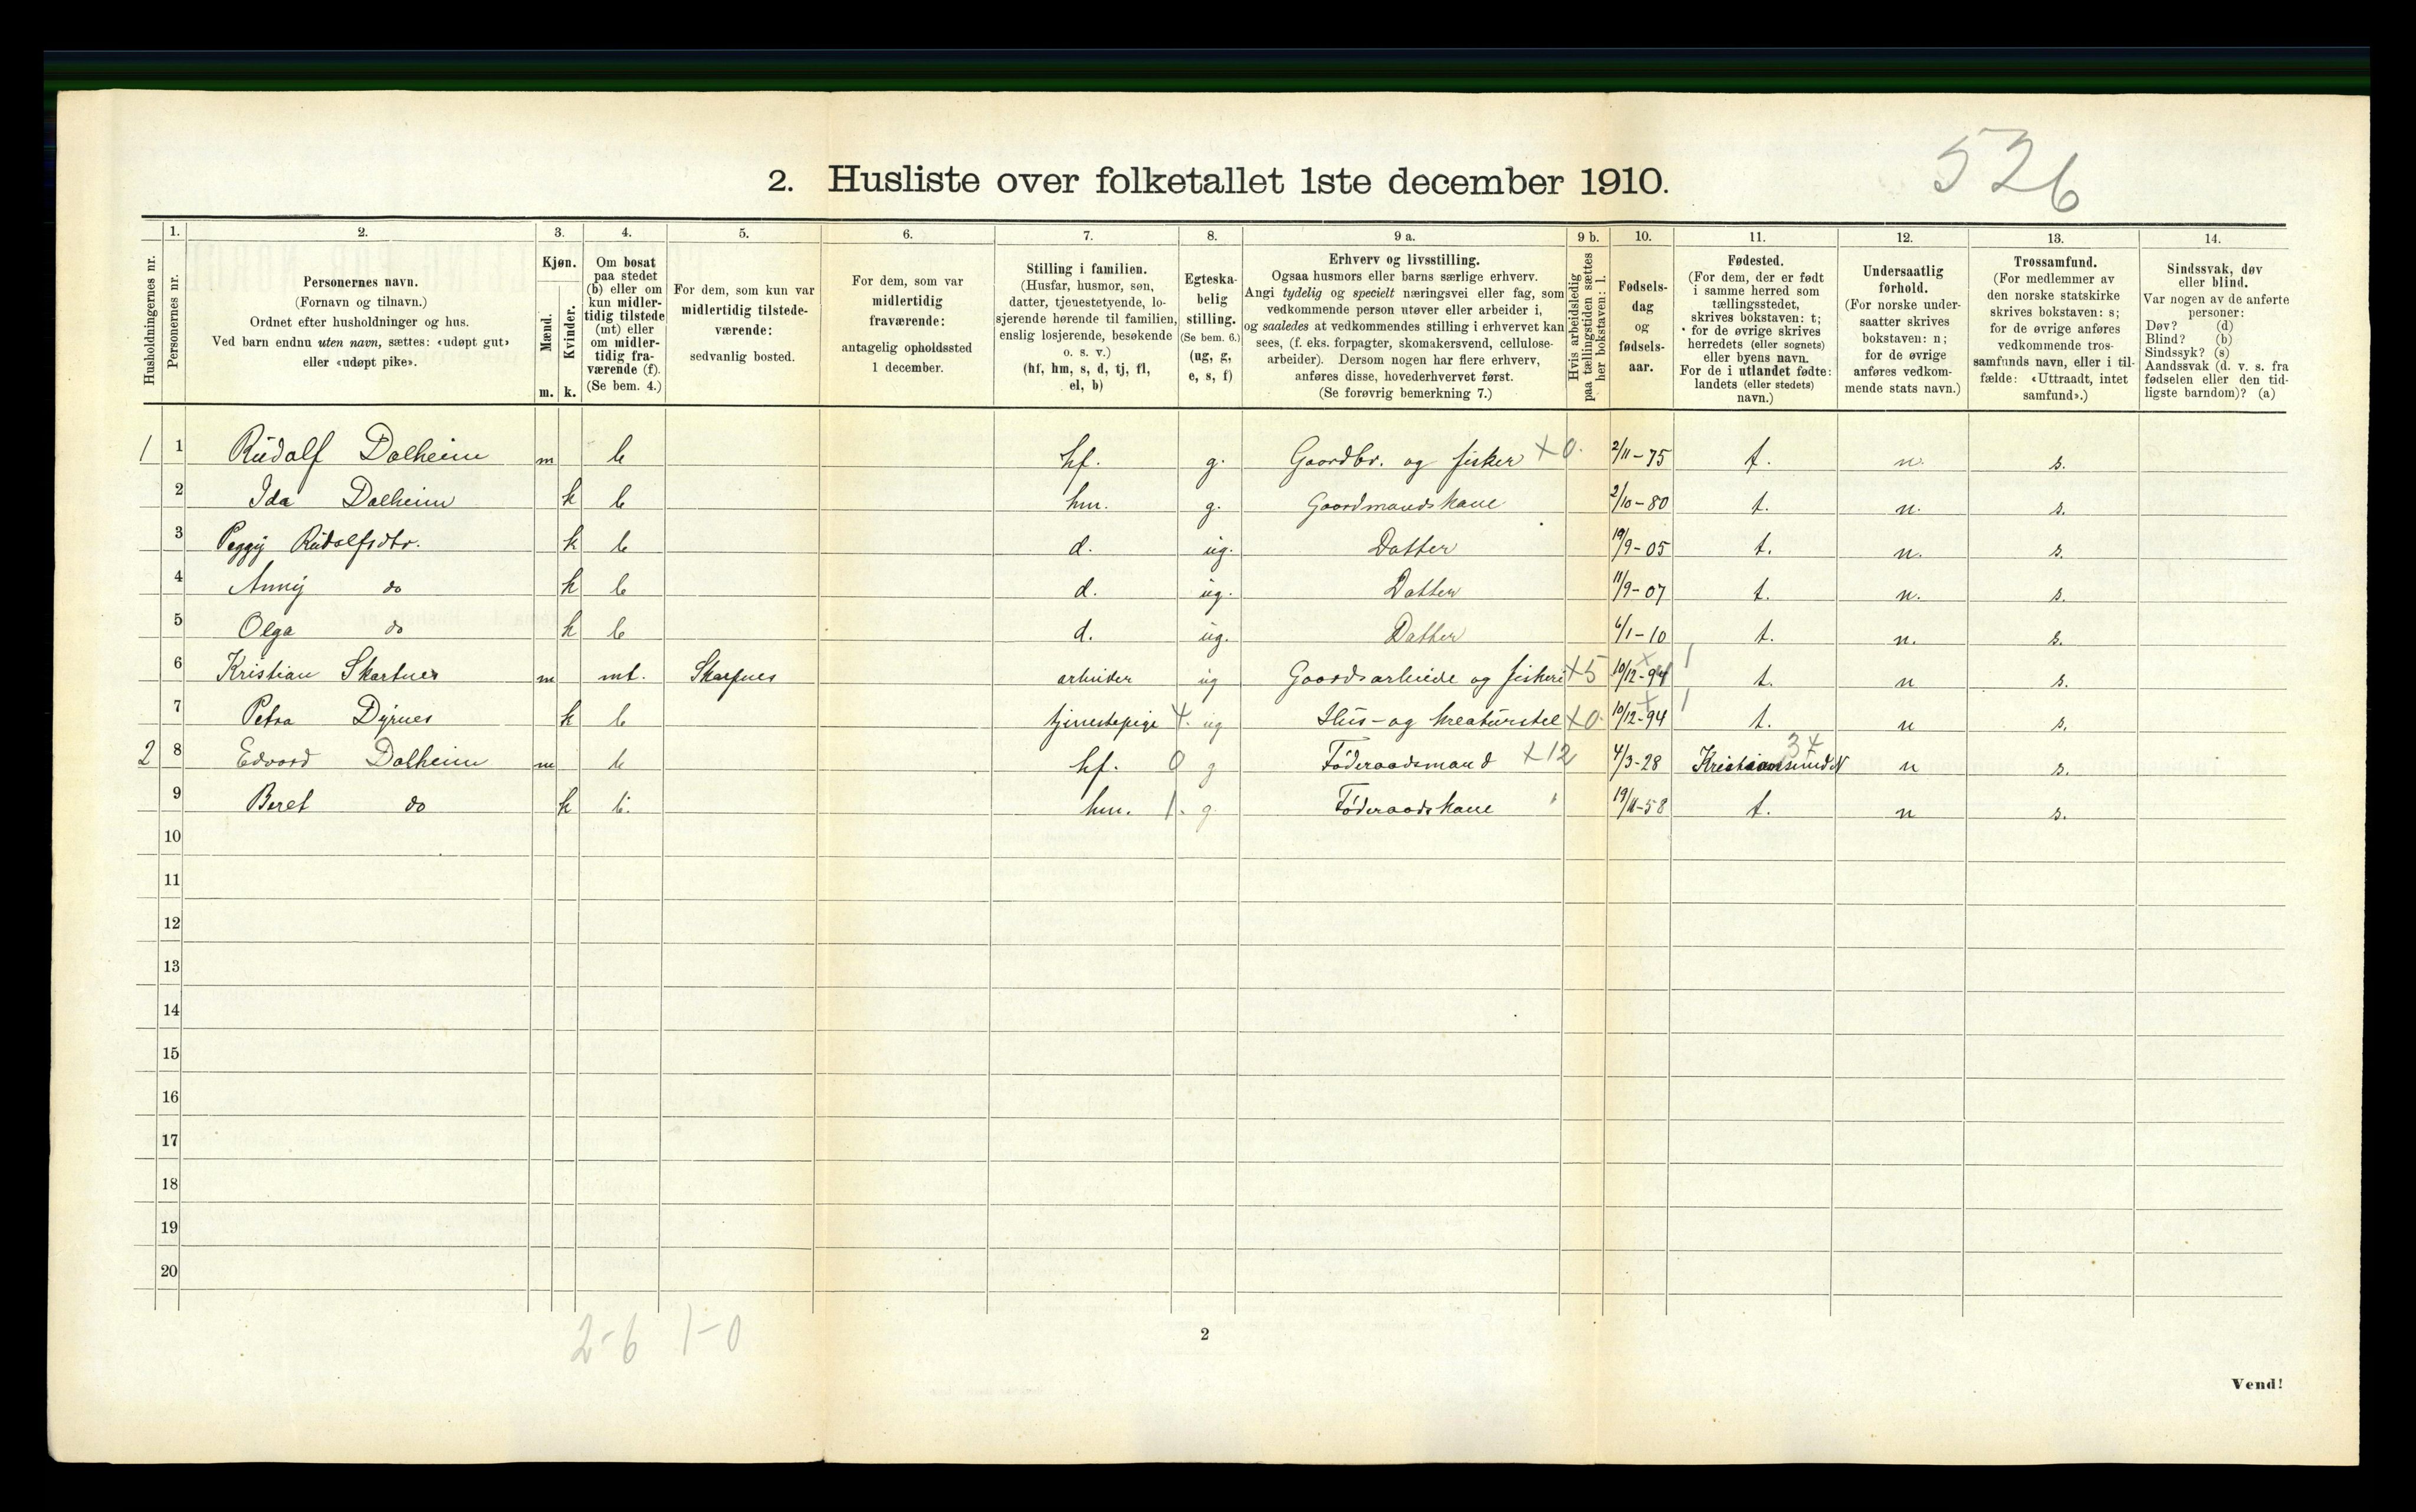 526
2. Husliste over folketallet 1ste december 1910.
Husholdningernes nr.
1. Personernes nr.
2. Personernes navn.
(Fornavn og tilnavn.)
Ordnet efter husholdninger og hus.
Ved barn endnu uten navn, sættes: «udøpt gut»
eller «udøpt pike».
3. Kjøn.
Mænd. m.
Kvinder. k.
4. Om bosat
paa stedet
(b) eller om
kun midler-
tidig tilstede
(mt) eller
om midler-
tidig fra-
værende (f).
(Se bem. 4.)
5. For dem, som kun var
midlertidig tilstede-
værende:
sedvanlig bosted.
6. For dem, som var
midlertidig
fraværende:
antagelig opholdssted
1 december.
7. Stilling i familien.
(Husfar, husmor, søn,
datter, tjenestetyende, lo-
sjerende hørende til familien,
enslig losjerende, besøkende
o. s. v.)
(hf, hm, s, d, tj, fl,
el, b)
8. Egteska-
belig
stilling.
(Se bem. 6.)
(ug, g,
e, s, f)
9 a. Erhverv og livsstilling.
Ogsaa husmors eller barns særlige erhverv.
Angi tydelig og specielt næringsvei eller fag, som
vedkommende person utøver eller arbeider i,
og saaledes at vedkommendes stilling i erhvervet kan
sees, (f. eks. forpagter, skomakersvend, cellulose-
arbeider). Dersom nogen har flere erhverv,
anføres disse, hovederhvervet først.
(Se forøvrig bemerkning 7.)
9 b. Hvis arbeidsledig
paa tællingstiden sættes
her bokstaven: l.
10. Fødsels-
dag
og
fødsels-
aar.
11. Fødested.
(For dem, der er født
i samme herred som
tællingsstedet,
skrives bokstaven: t;
for de øvrige skrives
herredets (eller sognets)
eller byens navn.
For de i utlandet fødte:
landets (eller stedets)
navn.)
12. Undersaatlig
forhold.
(For norske under-
saatter skrives
bokstaven: n;
for de øvrige
anføres vedkom-
mende stats navn.)
13. Trossamfund.
(For medlemmer av
den norske statskirke
skrives bokstaven: s;
for de øvrige anføres
vedkommende tros-
samfunds navn, eller i til-
fælde: «Uttraadt, intet
samfund».)
14. Sindssvak, døv
eller blind.
Var nogen av de anførte
personer:
Døv? (d)
Blind? (b)
Sindssyk? (s)
Aandssvak (d. v. s. fra
fødselen eller den tid-
ligste barndom)? (a)
1 1 Rudolf Dalheim m b hf. g. Gaardbr. og fisker +0. 2/11-75 t. n. s.
2 Ida Dalheim k b hm. g. Gaardmandskone 2/10-80 t. n. s.
3 Peggy Rudolfsdtr. k b d. ug. Datter 19/9-05 t. n. s.
4 Anny do k b d. ug. Datter 11/9-07 t. n. s.
5 Olga do k b d. ug. Datter 6/1-10 t. n. s.
6 Kristian Skarpnes m mt. Skarpnes arbeider ug Gaardsarbeide og fiskeri +5 10/12-94 t. n s.
7 Petra Dyrnes k b tjenestepige 4. ug Hus- og kreaturstel +0. 10/12-94 t. n s.
2 8 Edvard Dalheim m b hf. 0 g Føderaadsmand +12 4/3-28 Kristiansund N 34 n s.
9 Beret do k b. hm. 1. g. Føderaadskone 19/11-58 t. n s.
10
11
12
13
14
15
16
17
18
19
20
2-6 1-0
2
Vend!